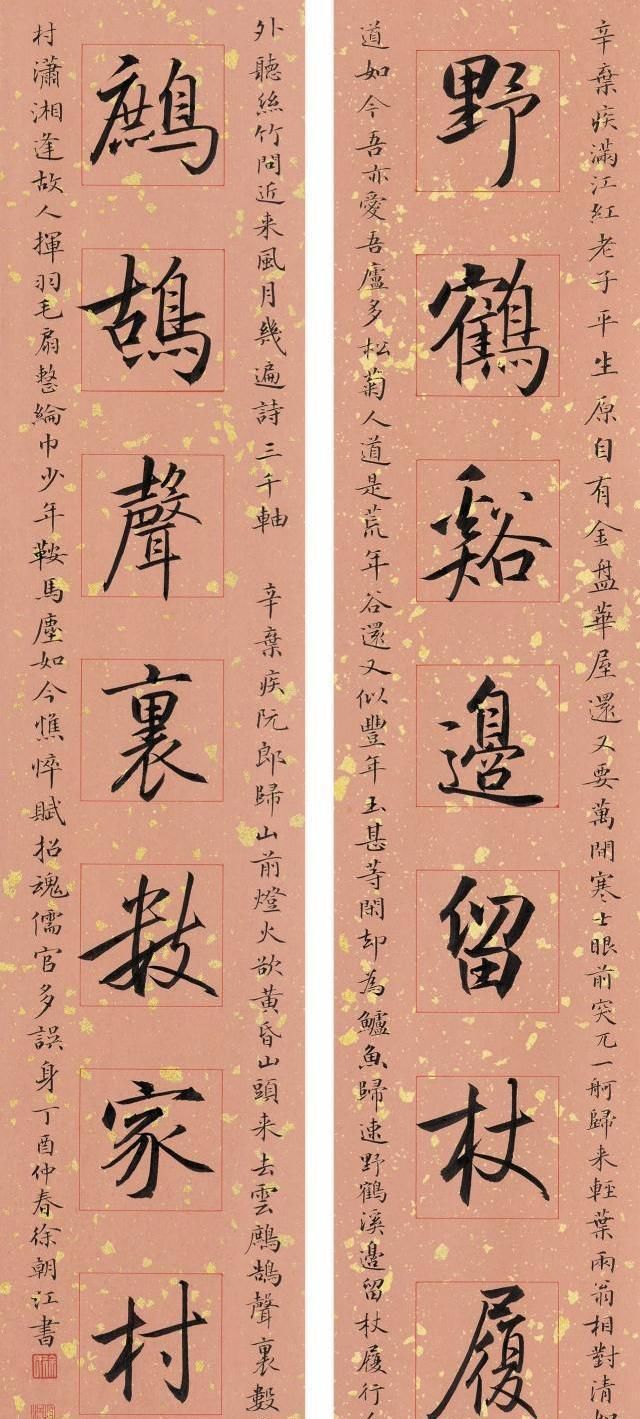 辛棄疾滿江紅老子平生原自有金盤華屋還又要萬間寒士眼前突兀一舸歸来輕葉兩翁相對清如
野鶴谿邊留杖履
道如今吾亦愛吾廬多松菊人道是荒年谷還又似豐年玉甚等閑却為鱸魚歸速野鶴溪邊留杖履行
外聽絲竹問近来風月幾遍詩三千軸 辛棄疾阮郎歸山前燈火欲黃昏山頭来去雲鷓鴣聲裏數
鷓鴣聲裏數家村
村瀟湘逢故人揮羽毛扇整綸巾少年鞍馬塵如今憔悴賦招魂儒官多誤身丁酉仲春徐朝江書